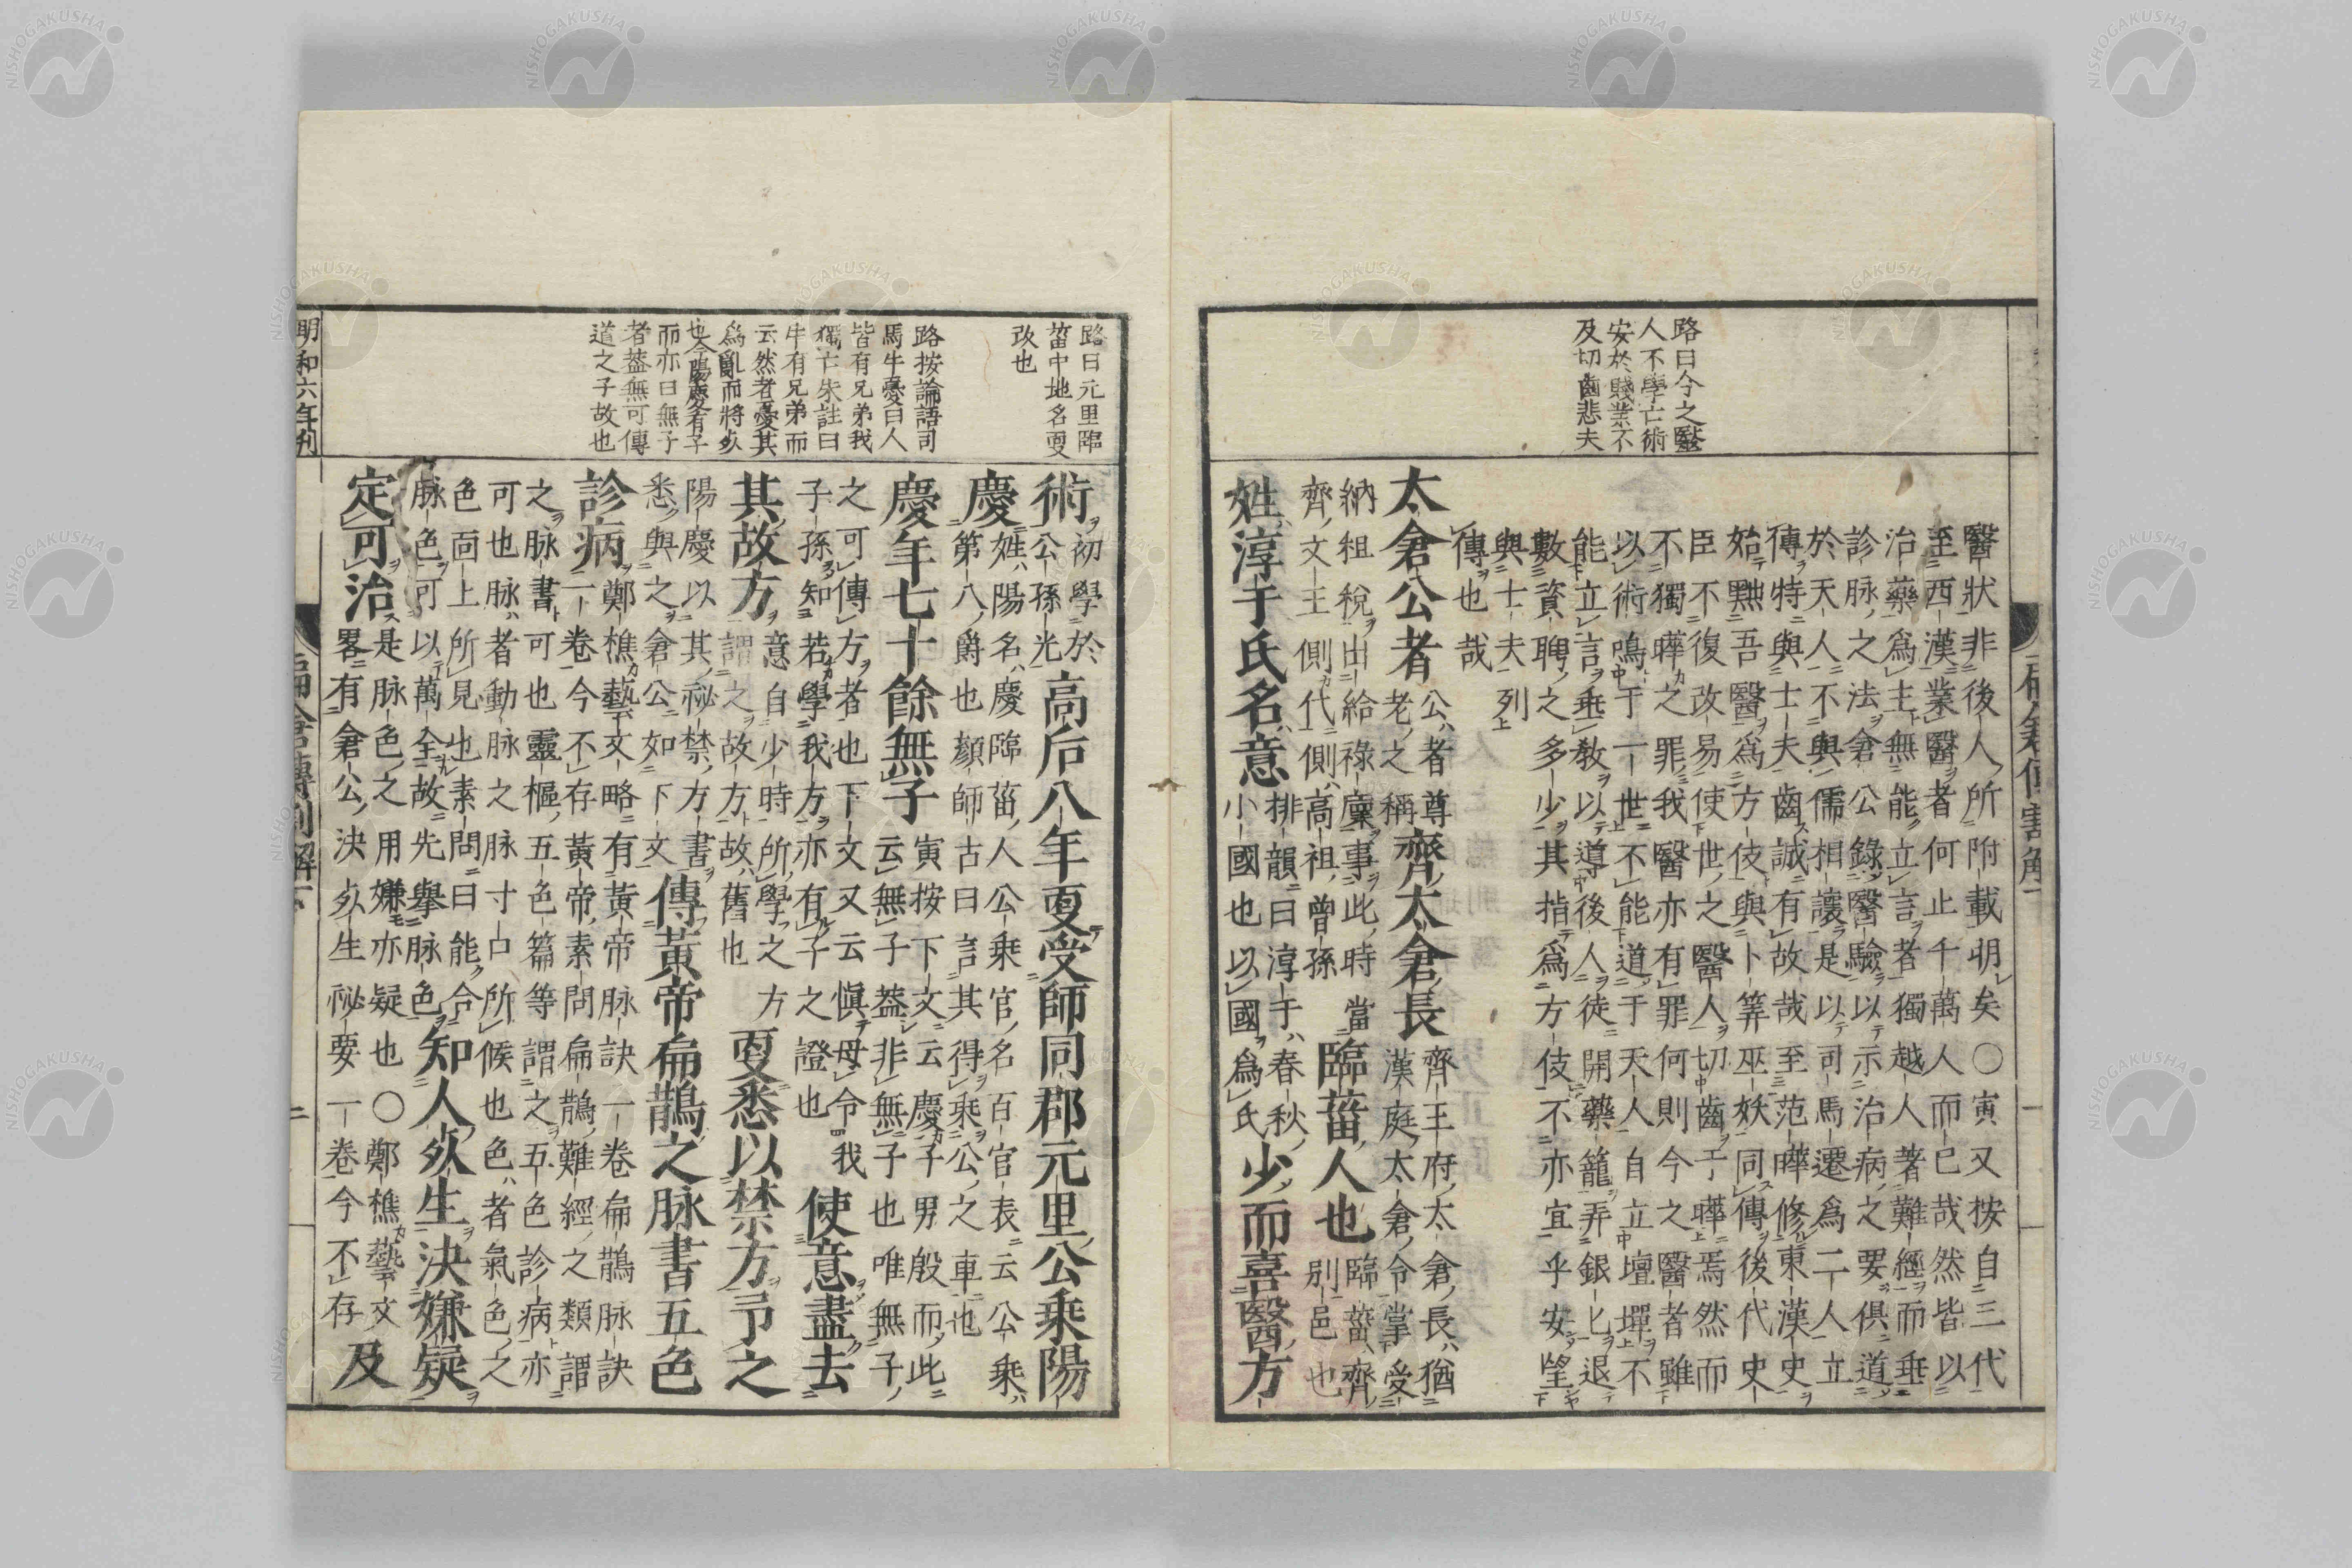 路曰今之醫
人不學亡術
安於賤業不
及切齒悲夫
醫狀非後人所附載明矣〇寅又按自三代
至西漢業醫者何止千萬人而已哉然皆以
治藥爲主無能立言者獨越人著難經而垂
診脉之法倉公錄醫驗以示治病之要俱道
於天人不與儒相讓是以司馬遷爲二人立
傳特與士夫齒誠有故哉至范曄修東漢史
始黜吾醫爲方伎與卜筭巫妖同傳後代史
臣不復改易使世之醫人切齒于曄焉然而
不獨曄之罪我醫亦有罪何則今之醫者雖
以術鳴于一世不能道于天人自立壇墠不
能立言垂教以導後人徒開藥籠弄銀匕退
數資聘之多少其指爲方伎不亦宜乎安望
與士夫列
傳也哉
太倉公者公者尊老之稱齊太倉長齊王府太倉長猶漢庭太倉令掌受
納租稅出給祿廩事此時當齊文王側代側高祖曾孫臨菑人也臨菑齊別邑也
姓淳于氏名意排韻曰淳于春秋小國也以國爲氏少而喜醫方
路曰元里臨
菑中地名更
改也
路按論語司
馬牛憂曰人
皆有兄弟我
獨亡朱註曰
牛有兄弟而
云然者憂其
爲亂而將死
也今陽慶有子
而亦曰無子
者葢無可傳
道之子故也
術初學於公孫光高后八年更受師同郡元里公乘陽
慶姓陽名慶臨菑人公乘官名百官表云公乘第八爵也顏師古曰言其得乘公之車也
慶年七十餘無子寅按下文云慶子男殷而此云無子葢非無子也唯無子
之可傳方者也下文又云愼毋令我子孫知若學我方亦有子之證也使意盡去
其故方意自少時所學之方謂之故方故舊也更悉以禁方予之
陽慶以其秘禁方書悉與之倉公如下文傳黃帝扁鵲之脉書五色
診病鄭樵藝文略有黃帝脉訣一卷扁鵲脉訣一卷今不存黃帝素問扁鵲難經之類謂
之脉書可也靈樞五色篇等謂之五色診病亦可也脉者動脉之脉寸口所候也色者氣色之
色面上所見也素問曰能合脉色可以萬全故先擧脉色知人死生決嫌疑
定可治是脉色之用嫌亦疑也〇鄭樵藝文畧有倉公決死生祕要一卷今不存及
明和六年刊
扁倉傳割解下
二